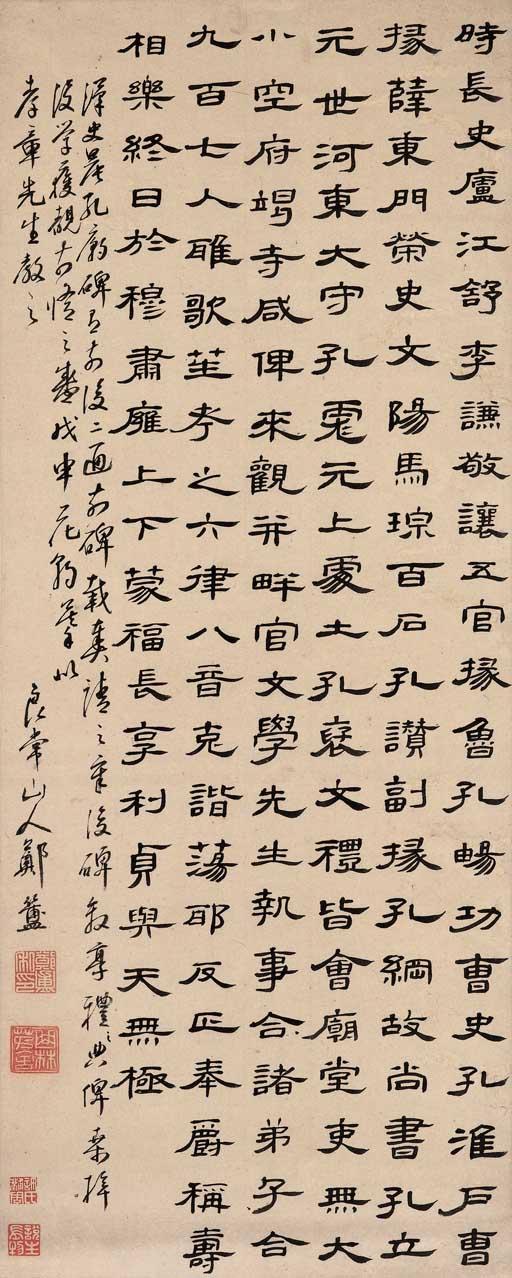 時長史廬江舒李謙敬讓五官掾魯孔暢功曹史孔淮戶曹
掾薛東門榮史文陽馬琮百石孔讃副掾孔綱故尚書孔立
元世河東大守孔彪元上處土孔褒文禮皆會廟堂吏無大
小空府竭寺咸俾來觀并畔官文學先生執事合諸弟子合
九百七人雅歌笙考之六律八音克諧蕩耶反正奉爵稱壽
相樂終日於穆肅廱上下蒙福長享利貞與天無極
漢史晨孔廟碑有前後二通前碑載奏請之章後碑敘享禮之典俾
後學獲觀戊申花朝以
孝章先生教之
良常山人鄭簠
鄭簠私印